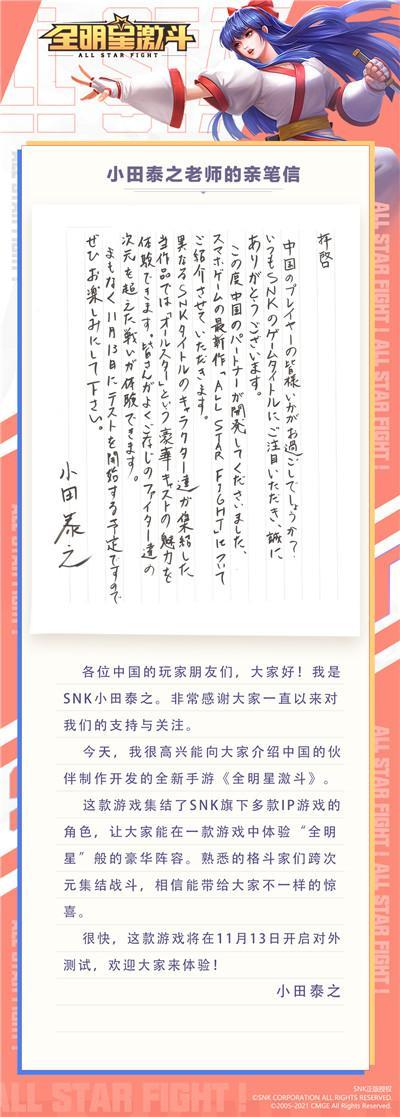 全明星激斗
ALL STAR FIGHT
小田泰之老师的亲笔信
拝啓
中国のプレイヤーの皆様いかがお過ごしでしょうか?
いつもSNKのゲームタイトルにご注目いただき、誠に
ありがとうございます。
この度中国のパートナーが開発してくださいました、
スマホゲームの最新作「ALL STAR FIGHT」について
ご紹介させていただきます。
異なるSNKタイトルのキャラクター達が集結した
当作品では「オールスター」という豪華キャストの魅力を
体験できます。皆さんがよくご存じのファイター達の
次元を超えた戦いが体験できます。
まもなく11月13日にテストを開始する予定ですので
ぜひお楽しみにして下さい。
小田泰之
各位中国的玩家朋友们，大家好！我是
SNK小田泰之。非常感谢大家一直以来对
我们的支持与关注。
今天，我很高兴能向大家介绍中国的伙
伴制作开发的全新手游《全明星激斗》。
这款游戏集结了SNK旗下多款IP游戏的
角色，让大家能在一款游戏中体验“全明
星”般的豪华阵容。熟悉的格斗家们跨次
元集结战斗，相信能带给大家不一样的惊
喜。
很快，这款游戏将在11月13日开启对外
测试，欢迎大家来体验！
小田泰之
ALL STAR FIGHT !
ALL STAR FIGHT !
ALL STAR FIGHT !
SNK正版授权
©SNK CORPORATION ALL RIGHTS RESERVED.
©2005-2021 CMGE All Rights Reserved.